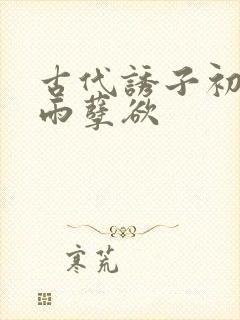 古代誘子初
雨孽欲
寒荒